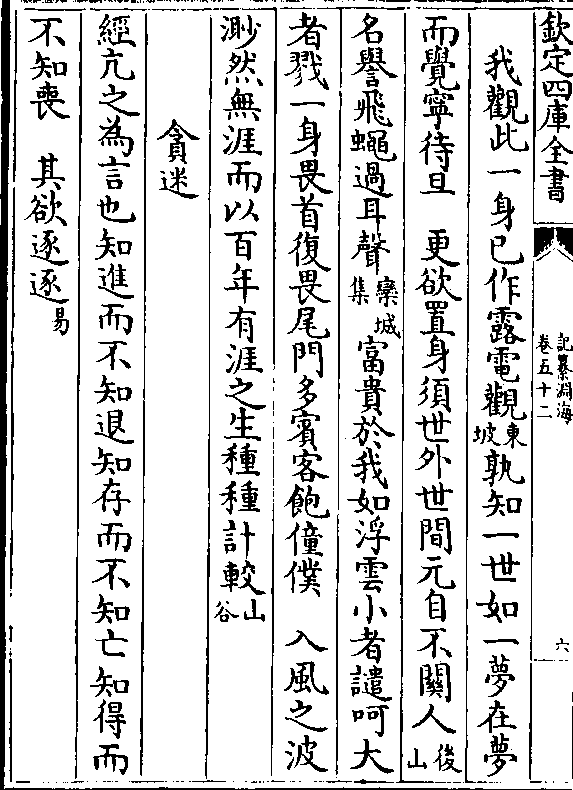 欽定四庫全書
記纂淵海
卷五十二
六
我觀此一身已作露電觀東坡孰知一世如一夢在夢
而覺寧待旦　更欲置身須世外世間元自不關人後山
名譽飛蠅過耳聲欒城集富貴於我如浮雲小者譴呵大
者戮一身畏首復畏尾門多賓客飽僮僕　入風之波
渺然無涯而以百年有涯之生種種計較山谷
貪迷
經亢之為言也知進而不知退知存而不知亡知得而
不知喪　其欲逐逐易